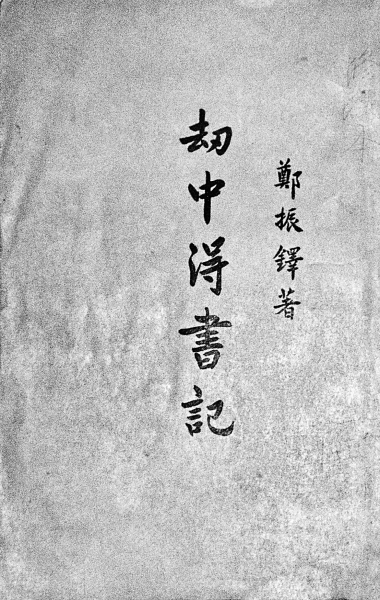 鄭振鐸著
劫中得書記